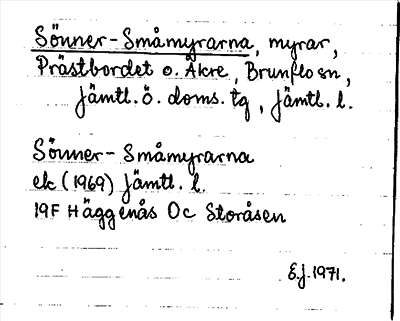 Sönner-Småmyrarna, myrar,
Prästbordet o. Åkre, Brunflo sn,
Jämtl. ö. doms. tg, Jämtl. l.
Sönner-Småmyrarna
ek (1969) Jämtl. l.
19F Häggenås Oc Storåsen
E.J. 1971.